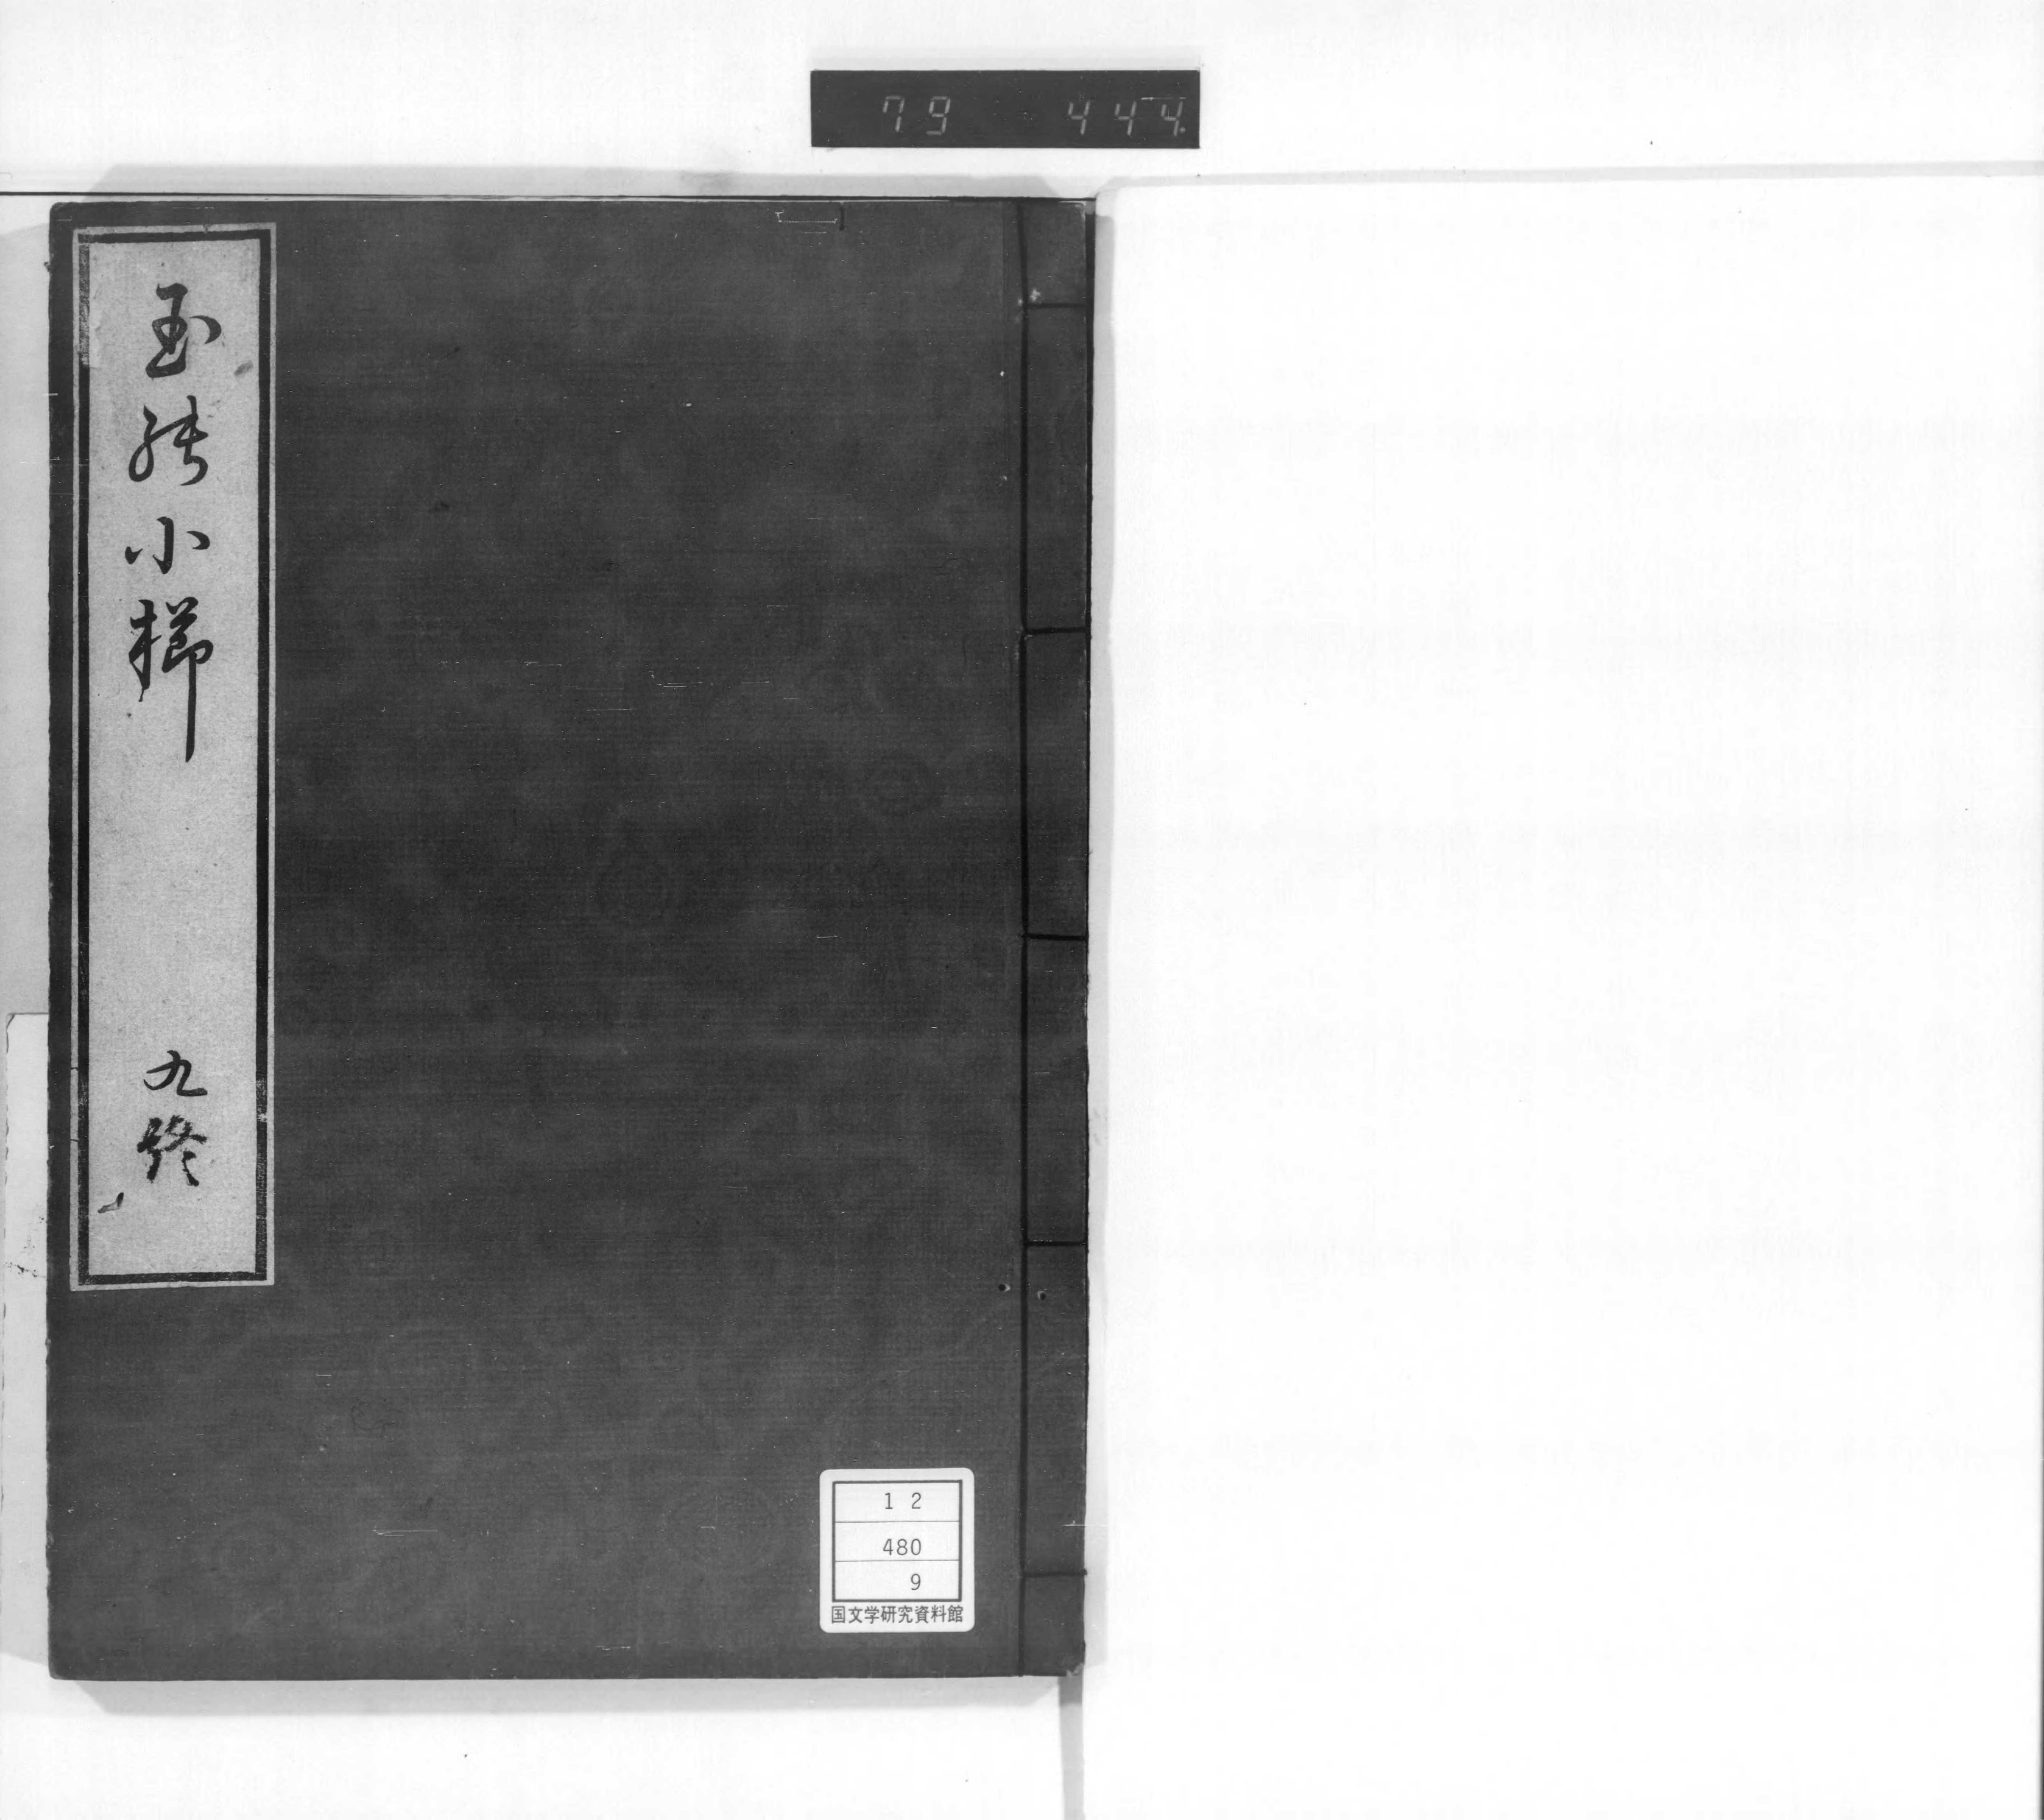 79 444
玉能小櫛
九終
12
480
9
国文学研究資料館